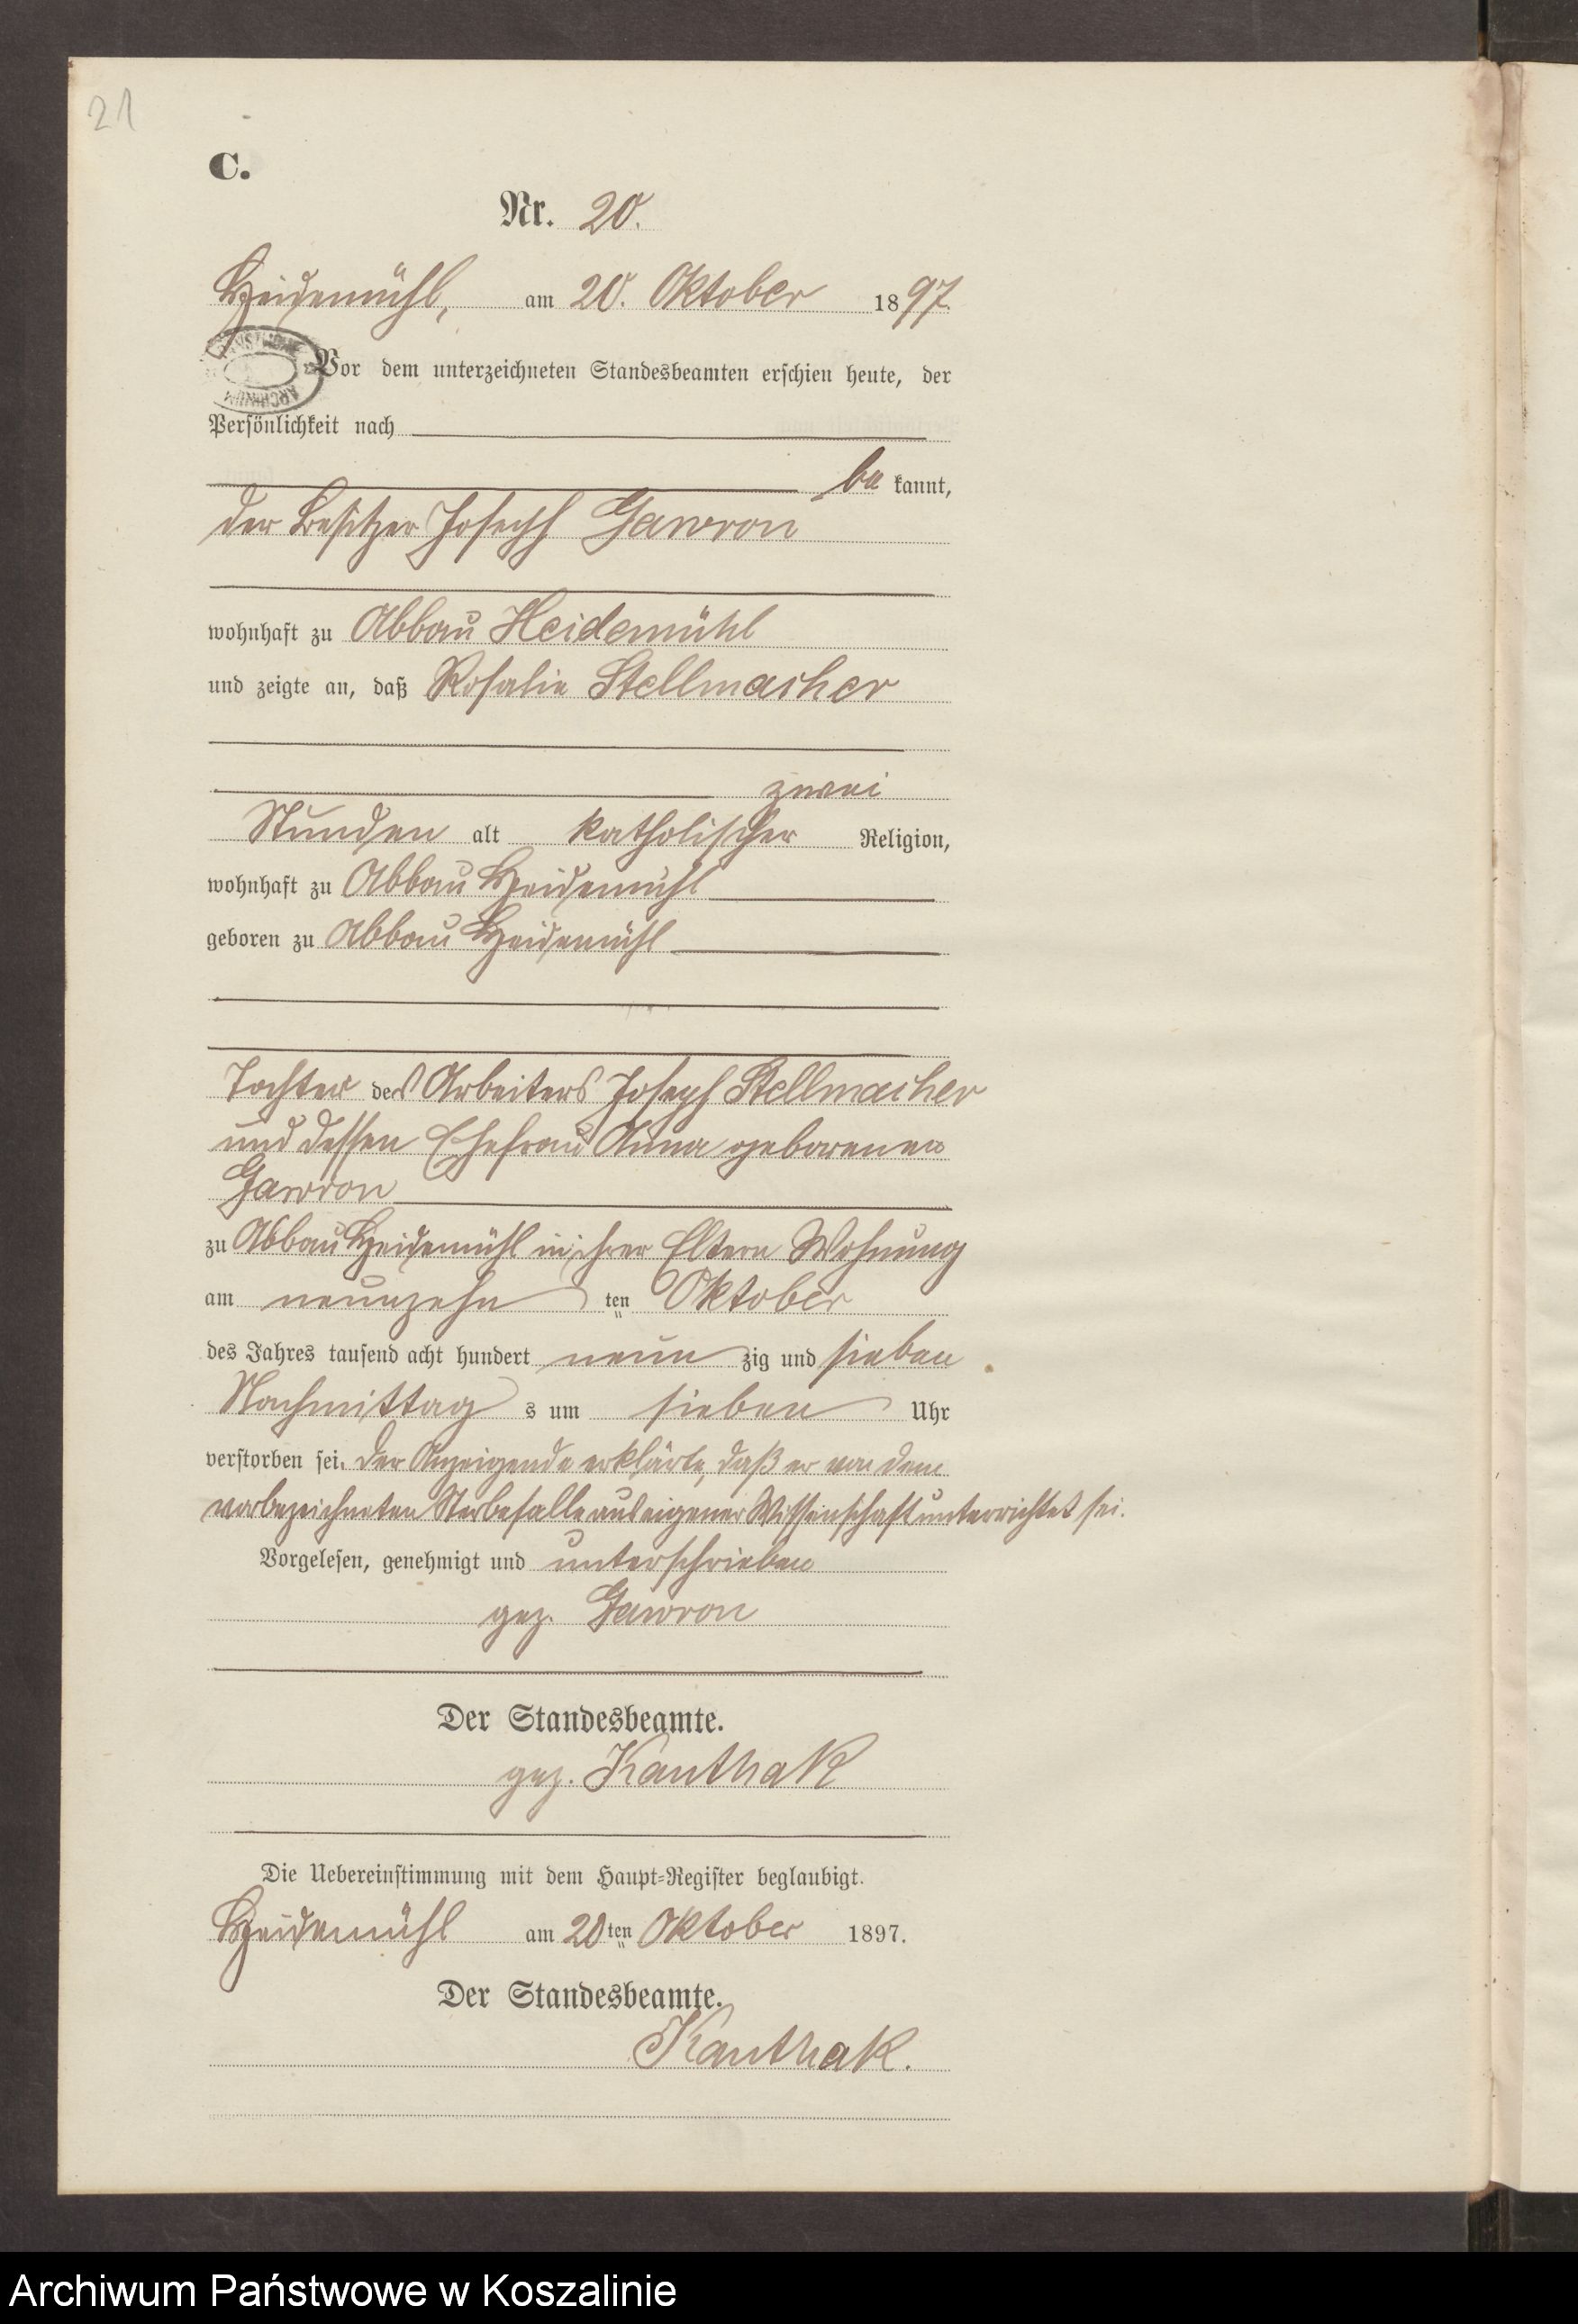 21
C.
Nr. 20.
Heidemühl, am 20. Oktober 1897
Vor dem unterzeichneten Standesbeamten erschien heute, der
Persönlichkeit nach
be kannt,
der Besitzer Joseph Gawron
wohnhaft zu Abbau Heidemühl
und zeigte an, daß Rosalie Stellmacher
zwei
Stunden alt katholischer Religion,
wohnhaft zu Abbau Heidemühl
geboren zu Abbau Heidemühl
Tochter des Arbeiters Joseph Stellmacher
und dessen Ehefrau Anna geborenen
Gawron
zu Abbau Heidemühl in ihrer Eltern Wohnung
am neunzehn ten Oktober
des Jahres tausend acht hundert neun zig und sieben
Nachmittag s um sieben Uhr
verstorben sei. Der Anzeigende erklärte, daß er von dem
vorbezeichneten Sterbefalle aus eigener Wissenschaft unterrichtet sei.
Vorgelesen, genehmigt und unterschrieben
gez. Gawron
Der Standesbeamte.
gez. Kanthak
Die Uebereinstimmung mit dem Haupt-Register beglaubigt.
Heidemühl am 20ten Oktober 1897.
Der Standesbeamte.
Kanthak.
Archiwum Państwowe w Koszalinie